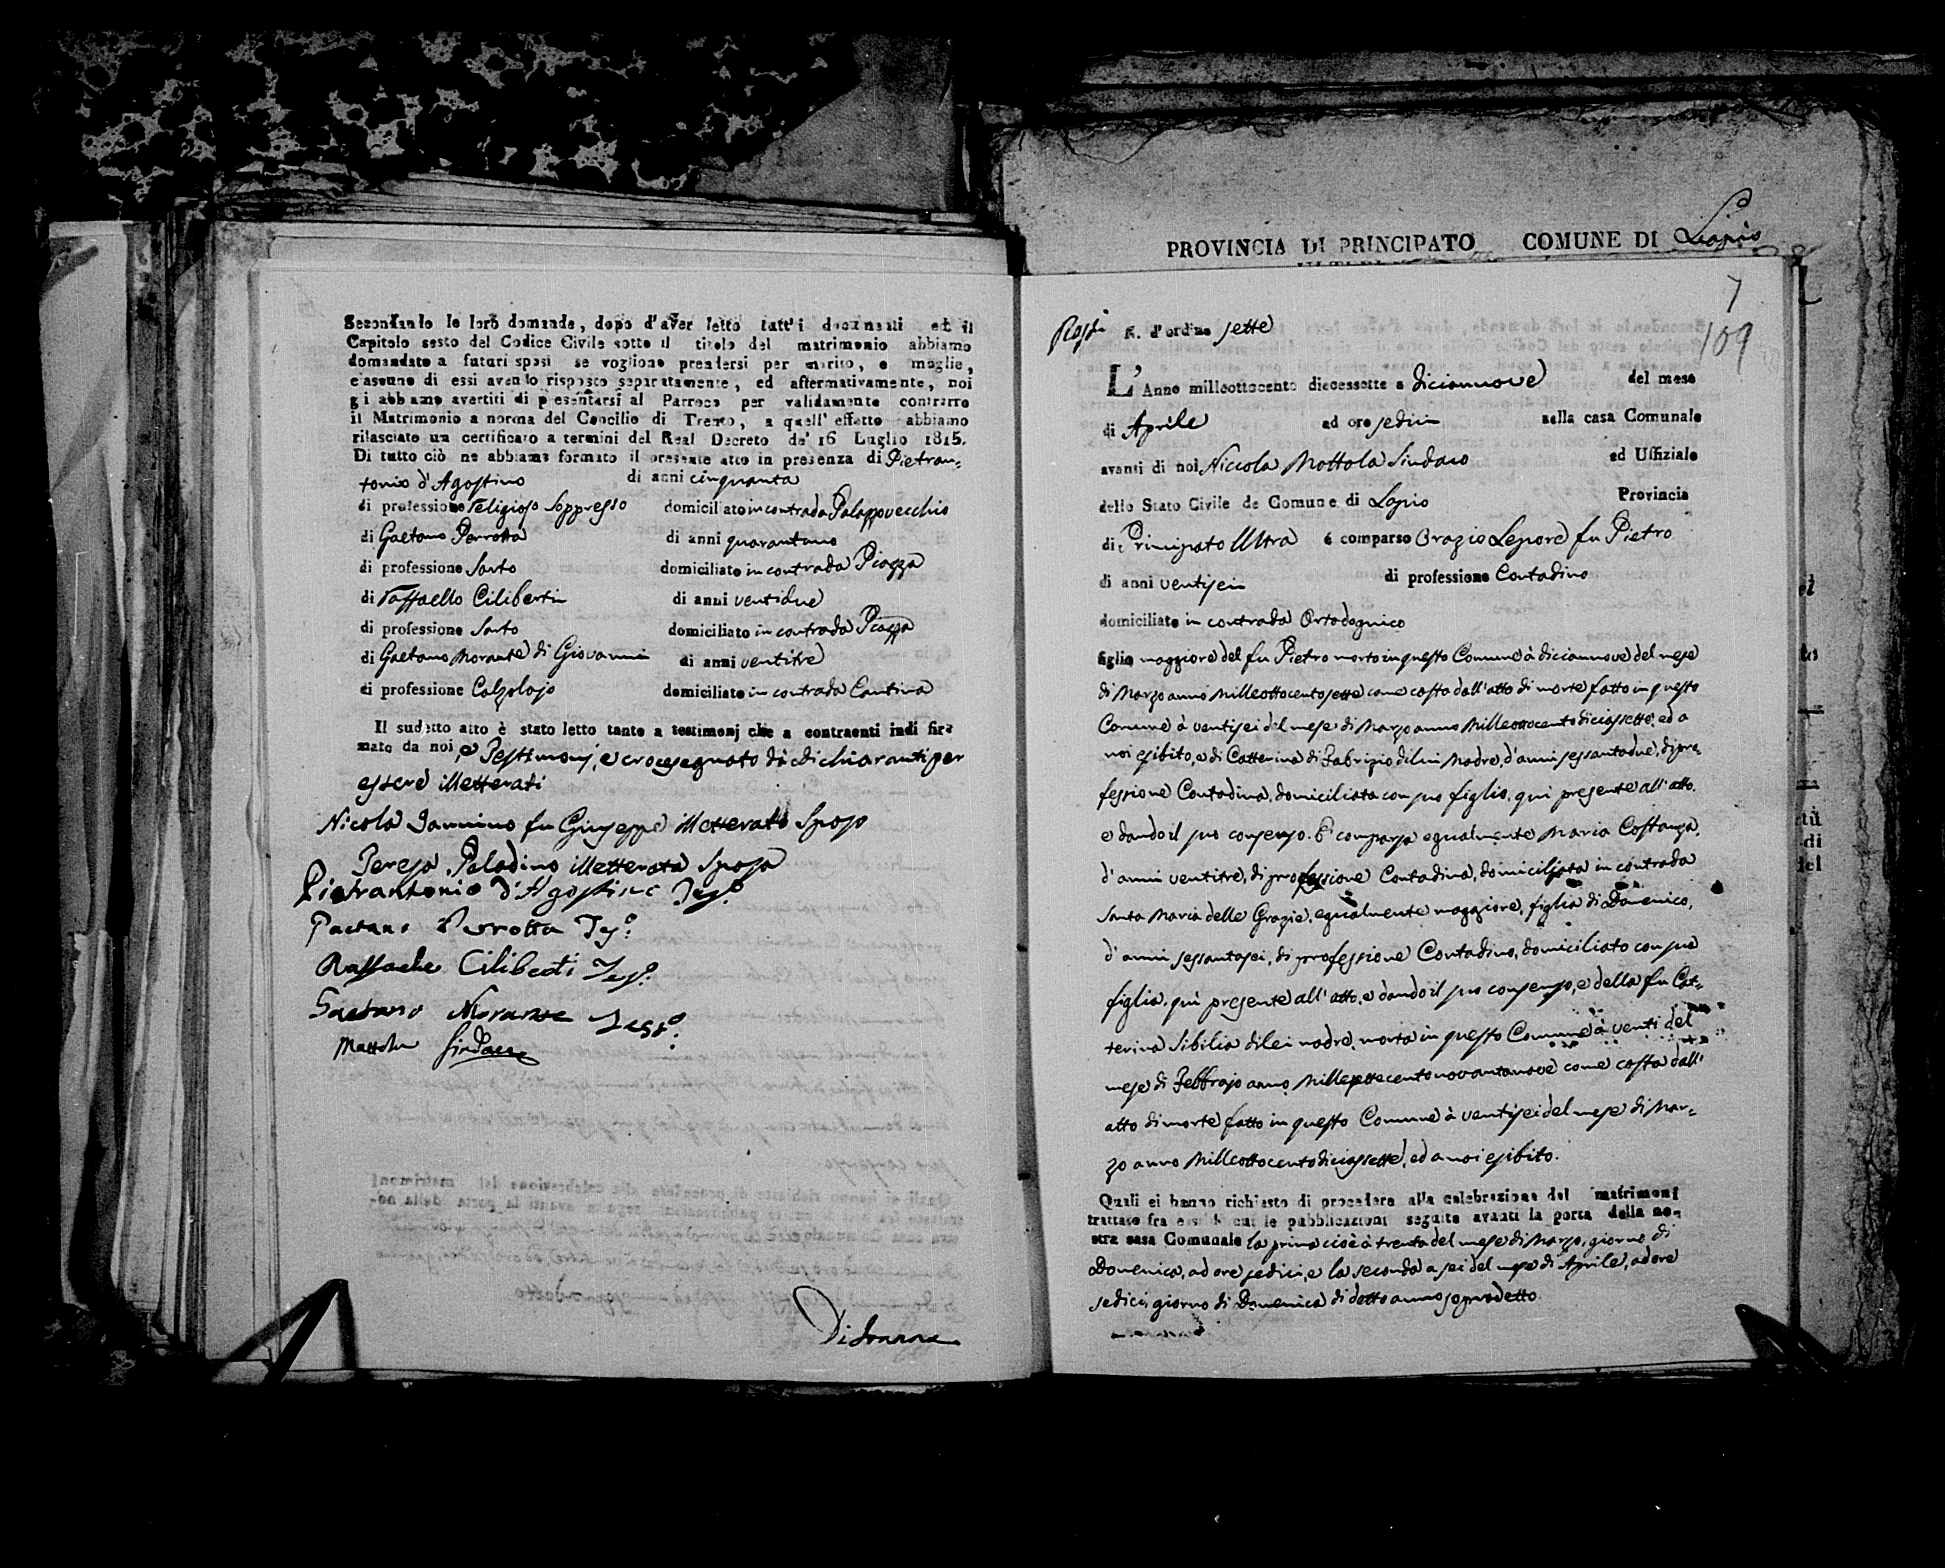 Secondando le loro domande, dopo d'aver letto tutt'i documenti ed il
Capitolo sesto del Codice Civile sotto il titolo del matrimonio abbiamo
domandato a futuri sposi se vogliono prendersi per marito, e moglie,
ciascuno di essi avendo risposto separatamente, ed affermativamente, noi
gi abbiamo avertiti di presentarsi al Parroco per validamente contrarre
il Matrimonio a norma del Concilio di Trento, a quell' effetto abbiamo
rilasciato un certificato a termini del Real Decreto de' 16 Luglio 1815.
Di tutto ciò ne abbiamo formato il presente atto in presenza di Pietran=
tonio d'Agostino di anni cinquanta
di professione religioso soppresso domiciliato in contrada Palazzovecchio
di Gaetano Perrotta di anni quarantuno
di professione Sarto domiciliato in contrada Piazza
di Raffaello Ciliberti di anni ventidue
di professione Sarto domiciliato in contrada Piazza
di Gaetano Morante di Giovanni di anni ventitre
di professione Calzolajo domiciliato in contrada Cantina
Il sudetto atto è stato letto tanto a testimonj che a contraenti indi fir-
mato da noi, e Testimonj, e crocesegnato dà dichiaranti per
essere illetterati
Nicola Iannino fu Giuseppe illetterato Sposo
Teresa Paladino illetterata Sposa
Pietrantonio d'Agostino Tes.º
Gaetano Perrotta Tes.º
Raffaele Ciliberti Tes.º
Gaetano Morante Test.º
Mottola Sindaco
PROVINCIA DI PRINCIPATO COMUNE DI Lapio
7
109
N. d'ordine sette
L'Anno milleottocento diecessette a diciannove del mese
di Aprile ad ore sedici nella casa Comunale
avanti di noi Niccola Mottola Sindaco ed Uffiziale
dello Stato Civile de Comune di Lapio Provincia
di Principato Ultra è comparso Orazio Lepore fu Pietro
di anni ventisei di professione Contadino
domiciliato in contrada Ortodognico
figlio maggiore del fu Pietro morto in questo Comune à diciannove del mese
di Marzo anno milleottocentosette come costa dall'atto di morte fatto in questo
Comune à ventisei del mese di Marzo anno Milleottocentodiciassette, ed a
noi esibito, e di Catterina di Fabrizio di lui Madre, d'anni sessantadue, di pro=
fessione Contadina, domiciliata con suo figlio, qui presente all'atto,
e dando il suo consenso. È comparsa egualmente Maria Costanza,
d'anni ventitre, di professione Contadina, domiciliata in contrada
Santa Maria delle Grazie, egualmente maggiore, figlia di Domenico,
d'anni sessantasei, di professione Contadino, domiciliato con sua
figlia, quì presente all'atto, e dando il suo consenso, e della fu Cat=
terina Sibilia di lei madre, morta in questo Comune à venti del
mese di Febbrajo anno Millesettecentonovantanove come costa dall'
atto di morte fatto in questo Comune à ventisei del mese di Mar=
zo anno Milleottocentodiciassette, ed a noi esibito.
Quali ci hanno richiesto di procedere alla celebrazione del matrimoni
trattato fra essi di cui le pubblicazioni seguite avanti la porta della no-
stra casa Comunale la prima cioè à trenta del mese di Marzo, giorno di
Domenica, ad ore sedici, e la seconda a sei del mese di Aprile, ad ore
sedici giorno di Domenica di detto anno sopradetto